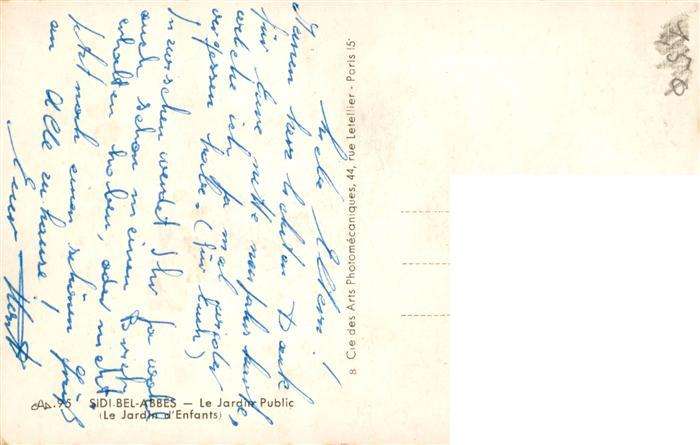 Liebe Eltern!
Meinen herzlichsten Dank
für Eure nette neujahrskarte,
welche ich ja mal wieder
vergessen habe. (für Euch)
Inzwischen werdet Ihr ja wohl
auch schon meinen Brief
erhalten haben, oder nicht.
Jetzt noch einen schönen Gruß
an Alle zuhause!
Euer
8 Cie des Arts Photomécaniques, 44, rue Letellier - Paris 15e
95 SIDI-BEL-ABBÈS — Le Jardin Public
(Le Jardin d'Enfants)